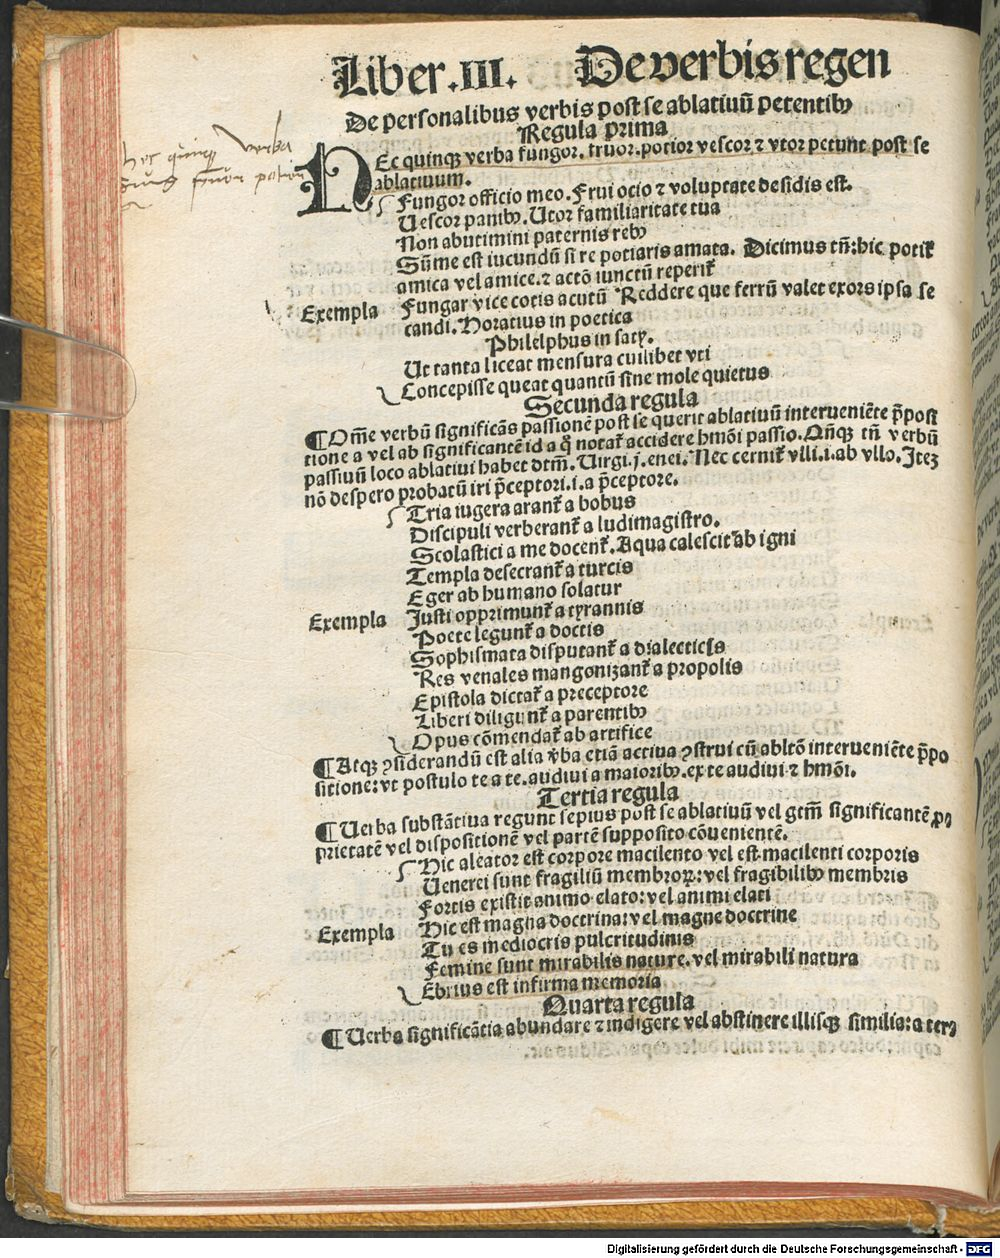 Liber .III. De verbis regen
De personalibus verbis post se ablatiuū petentibꝰ
Regula prima
HEc quinqꝫ verba fungor. fruor. potior vescor ⁊ vtor petunt post se
ablatiuum.
hec quinqꝫ verba
fungor fruor potior
Fungor officio meo. Frui ocio ⁊ voluptate desidis est.
Uescor panibꝰ. Utor familiaritate tua
Non abutimini paternis rebꝰ
Sūme est iucundū si re potiaris amata. Dicimus tn̄: hic potit᷑
amica vel amice. ⁊ actō iunctū reperit᷑
Exempla
Fungar vice cotis acutū Reddere que ferrū valet exors ipsa se
candi. Horatius in poetica
Philelphus in saty.
Ut tanta liceat mensura cuilibet vti
Concepisse queat quantū sine mole quietus
Secunda regula
¶ Om̄e verbū significās passionē post se querit ablatiuū interueniēte p̄posi
tione a vel ab significantē id a qͦ notat᷑ accidere hmōi passio. Qn̄qꝫ tn̄ verbū
passiuū loco ablatiui habet dtm̄. Uirgi. j. enei. Nec cernit᷑ vlli .i. ab vllo. Itez
nō despero probatū iri p̄ceptori .i. a p̄ceptore.
Tria iugera arant᷑ a bobus
Discipuli verberant᷑ a ludimagistro.
Scolastici a me docent᷑. Aqua calescit ab igni
Templa desecrant᷑ a turcis
Eger ab humano solatur
Exempla
Justi opprimunt᷑ a tyrannis
Poete legunt᷑ a doctis
Sophismata disputant᷑ a dialecticis
Res venales mangonizant᷑ a propolis
Epistola dictat᷑ a preceptore
Liberi diligunt᷑ a parentibꝰ
Opus cōmendat᷑ ab artifice
¶ Atqꝫ ꝯsiderandū est alia v̄ba etiā actiua ꝯstrui cū abltō interueniēte p̄po
sitione: vt postulo te a te. audiui a maioribꝰ. ex te audiui ⁊ hmōi.
Tertia regula
¶ Uerba substātiua regunt sepius post se ablatiuū vel gtm̄ significantē ꝓ
prietatē vel dispositionē vel partē supposito cōuenientē.
Hic aleator est corpore macilento vel est macilenti corporis
Uenerei sunt fragiliū membroꝝ: vel fragilibꝰ membris
Fortis existit animo elato: vel animi elati
Exempla
Hic est magna doctrina: vel magne doctrine
Tu es mediocris pulcritudinis
Femine sunt mirabilis nature. vel mirabili natura
Ebrius est infirma memoria
Quarta regula
¶ Uerba significātia abundare ⁊ indigere vel abstinere illisqꝫ similia: a ter
Digitalisierung gefördert durch die Deutsche Forschungsgemeinschaft - DFG